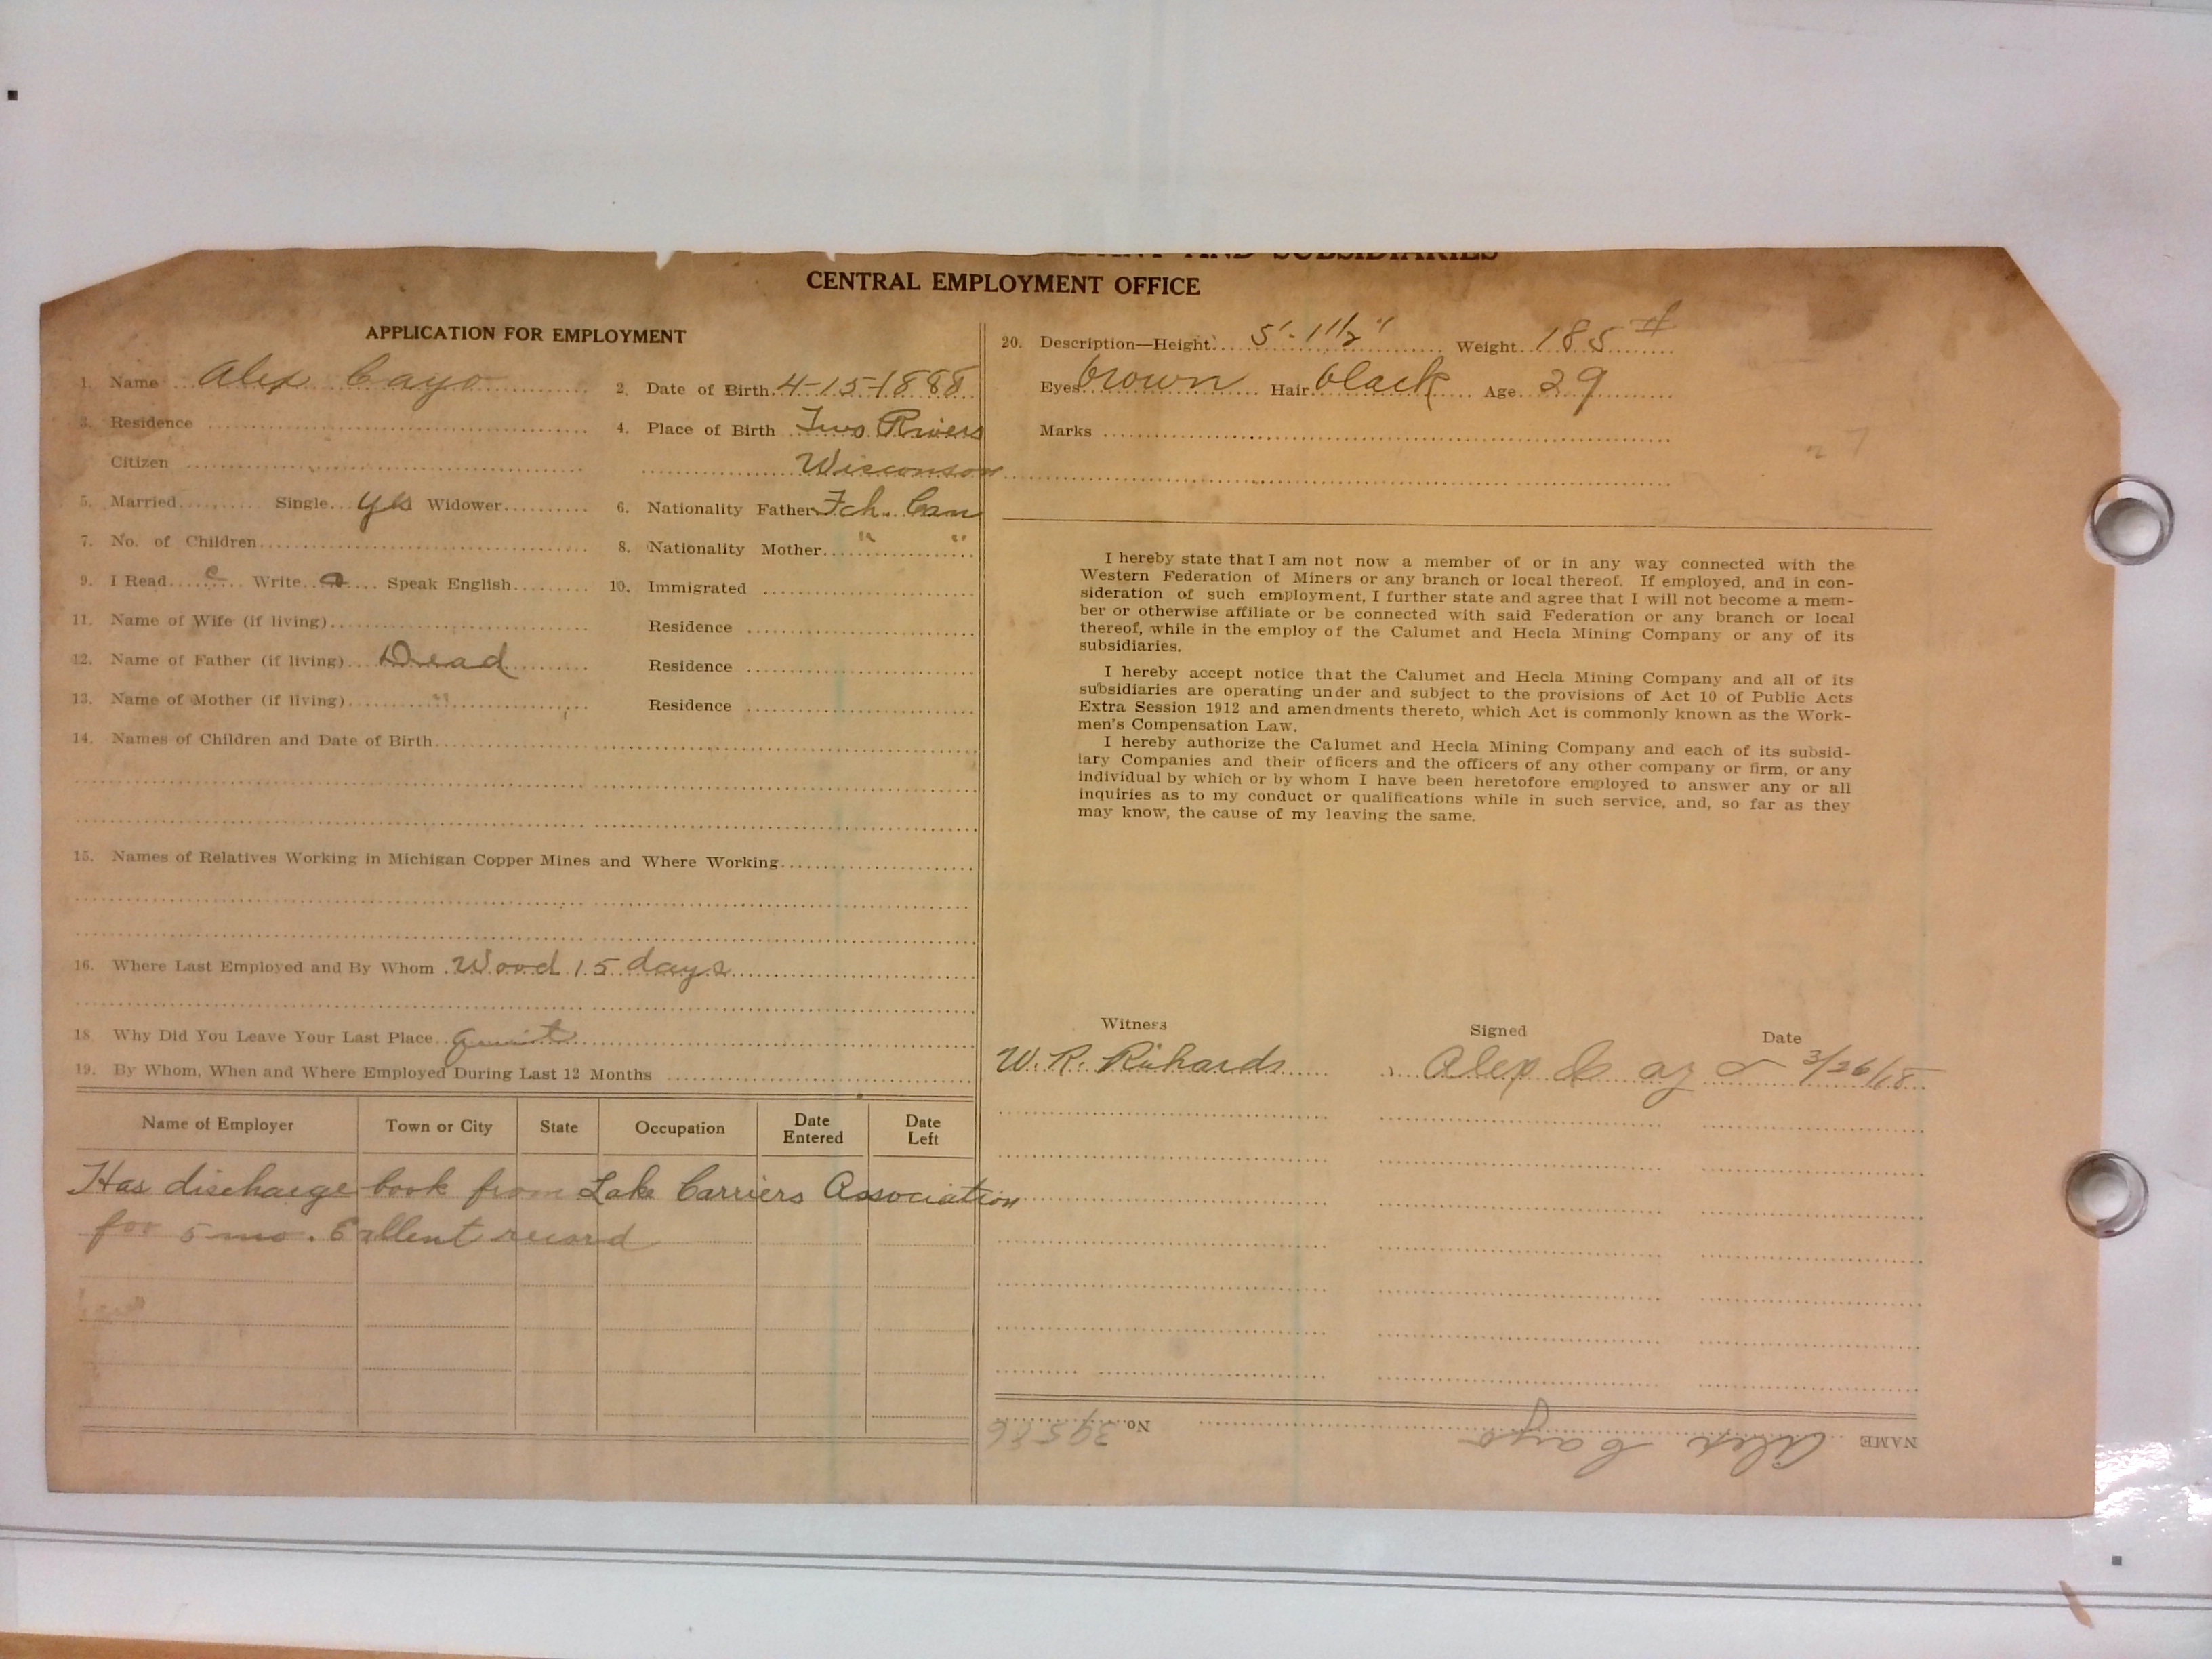 AND SUBSIDIARIES
CENTRAL EMPLOYMENT OFFICE
APPLICATION FOR EMPLOYMENT
1. Name Alex Cayo
2. Date of Birth 4-15-1888
3. Residence
4. Place of Birth Two Rivers
Citizen
Wisconson
5. Married Single yes Widower
6. Nationality Father Fch. Can
7. No. of Children
8. Nationality Mother " "
9. I Read Write Speak English
10. Immigrated
11. Name of Wife (if living)
Residence
12. Name of Father (if living) Dead
Residence
13. Name of Mother (if living) "
Residence
14. Names of Children and Date of Birth
15. Names of Relatives Working in Michigan Copper Mines and Where Working
16. Where Last Employed and By Whom Wood 15 days
18 Why Did You Leave Your Last Place quit
19. By Whom, When and Where Employed During Last 12 Months
Name of Employer Town or City State Occupation Date Entered Date Left
Has discharge book from Lake Carriers Association
for 5 mo. Exllent record
20. Description—Height 5'-11½" Weight 185#
Eyes brown Hair black Age 29
Marks
I hereby state that I am not now a member of or in any way connected with the
Western Federation of Miners or any branch or local thereof. If employed, and in con-
sideration of such employment, I further state and agree that I will not become a mem-
ber or otherwise affiliate or be connected with said Federation or any branch or local
thereof, while in the employ of the Calumet and Hecla Mining Company or any of its
subsidiaries.
I hereby accept notice that the Calumet and Hecla Mining Company and all of its
subsidiaries are operating under and subject to the provisions of Act 10 of Public Acts
Extra Session 1912 and amendments thereto, which Act is commonly known as the Work-
men's Compensation Law.
I hereby authorize the Calumet and Hecla Mining Company and each of its subsid-
iary Companies and their officers and the officers of any other company or firm, or any
individual by which or by whom I have been heretofore employed to answer any or all
inquiries as to my conduct or qualifications while in such service, and, so far as they
may know, the cause of my leaving the same.
Witness Signed Date
W. R. Richards Alex Cayo 3/26/18
NAME Alex Cayo No. 39586